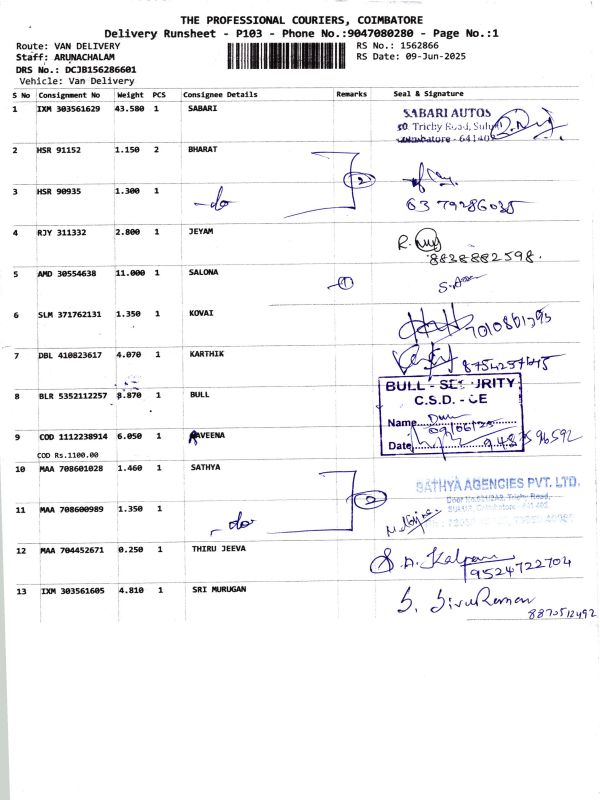 THE PROFESSIONAL COURIERS, COIMBATORE
Delivery Runsheet - P103 - Phone No.:9047080280 - Page No.:1
Route: VAN DELIVERY
RS No.: 1562866
Staff: ARUNACHALAM
RS Date: 09-Jun-2025
DRS No.: DCJB156286601
Vehicle: Van Delivery
S No Consignment No Weight PCS Consignee Details Remarks Seal & Signature
1 IXM 303561629 43.580 1 SABARI
SABARI AUTOS
Trichy Road,
- 641402
2 HSR 91152 1.150 2 BHARAT
2
3 HSR 90935 1.300 1 -do
6379286035
4 RJY 311332 2.800 1 JEYAM
R.
8838882598.
5 AMD 30554638 11.000 1 SALONA
1
S.
6 SLM 371762131 1.350 1 KOVAI
7 DBL 410823617 4.070 1 KARTHIK
8 BLR 5352112257 8.870 1 BULL
BULL - SECURITY
C.S.D. - CE
Name
Date
9 COD 1112238914 6.050 1 RAVEENA
COD Rs.1100.00
10 MAA 708601028 1.460 1 SATHYA
SATHYA AGENCIES PVT. LTD.
Trichy Road,
2
11 MAA 708600989 1.350 1 -do
12 MAA 704452671 0.250 1 THIRU JEEVA
S.A. Kalpana
9524722704
13 IXM 303561605 4.810 1 SRI MURUGAN
S. Siva Raman
8870512492